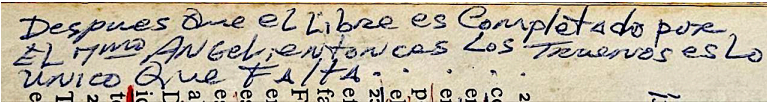 Despues Que el Libre es Completado por
EL 7mo ANGEL, entonces Los Truenos es Lo
UNICO QUE FALTA. . . . .